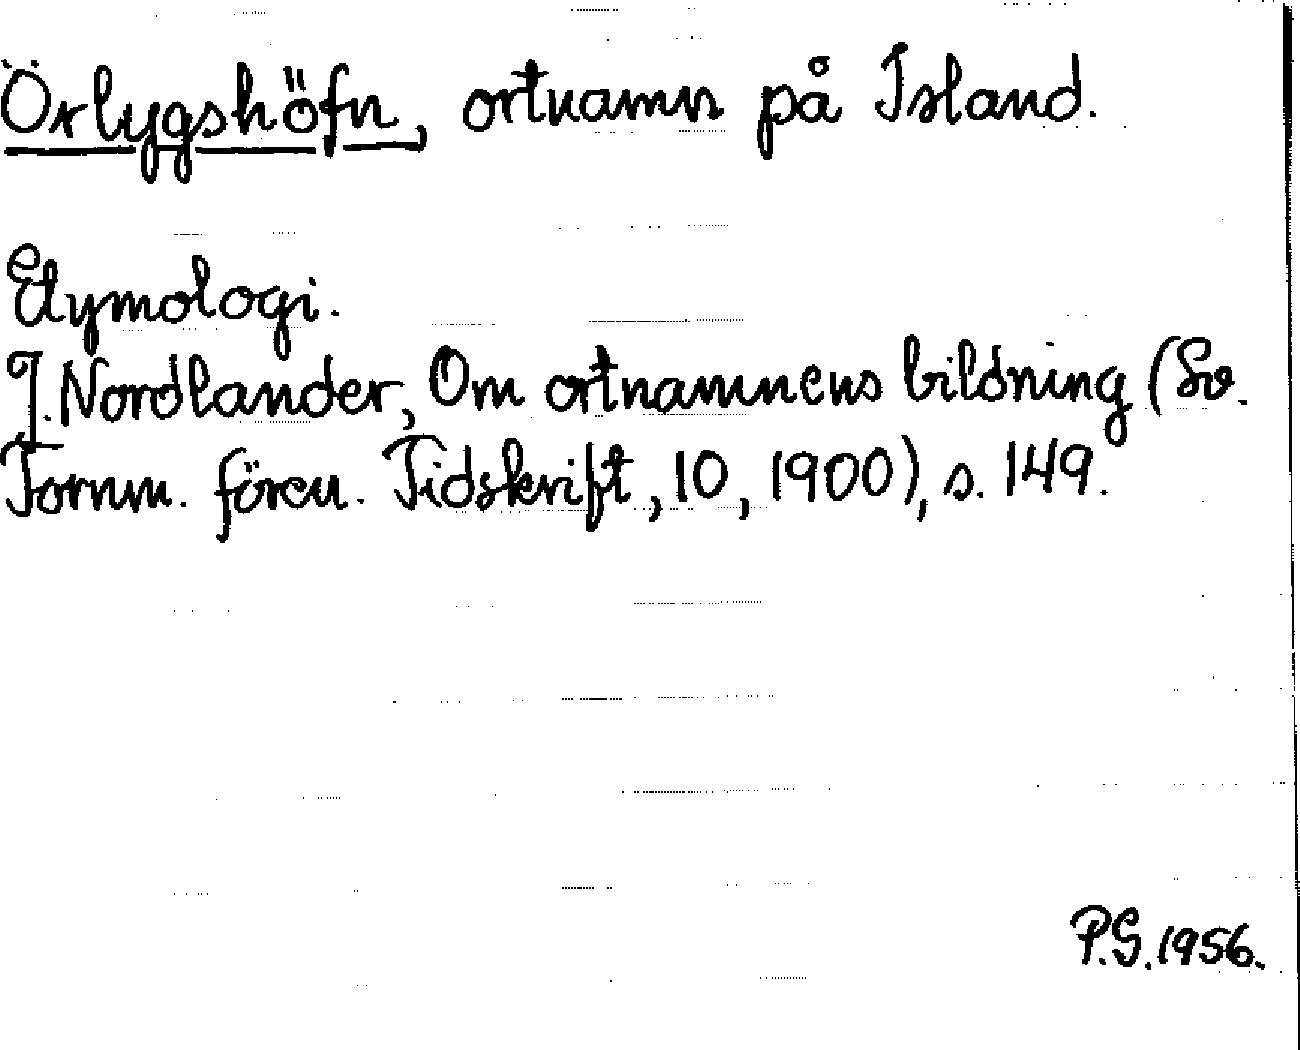 Örlygshöfn, ortnamn på Island.
Etymologi.
J. Nordlander, Om ortnamnens bildning (Sv.
Fornm. fören. Tidskrift, 10, 1900), s. 149.
P.G. 1956.